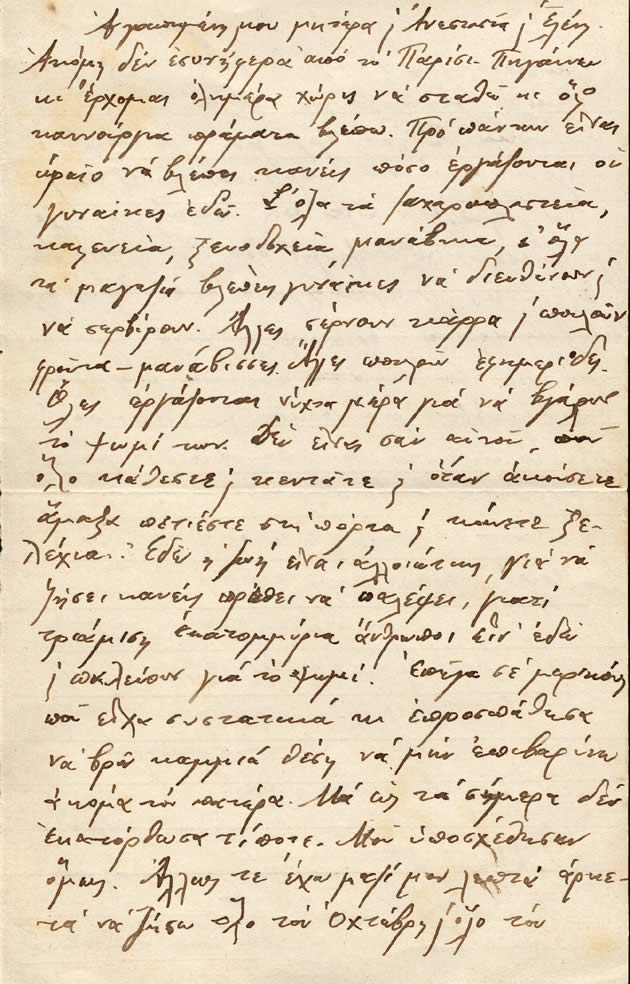 Αγαπημένη μου μητέρα, Ανεστασία, Ελένη.
Ακόμη δέν εσυνήφερα από τό Παρίσι. Πηγαίνω
κι έρχομαι όλημέρα χωρίς νά σταθώ κι όλο
καινούργια πράματα βλέπω. Πρό πάντων είναι
ωραίο νά βλέπει κανείς πόσο εργάζονται οι
γυναίκες εδώ. Σ' όλα τά ζαχαροπλαστεία,
καφενεία, ξενοδοχεία, μανάβικα, σ' όλα
τά μαγαζιά βλέπεις γυναίκες νά διευθύνουν ή
νά σερβίρουν. Άλλες σέρνουν κάρρα ή πουλούν
φρούτα – μανάβισσες. Άλλες πουλούν εφημερίδες.
Όλες εργάζονται νύχτα μέρα γιά νά βγάλουν
τό ψωμί των. Δέν είναι σάν αυτού, πού
όλο κάθεστε ή κεντάτε ή όταν ακούσετε
άμαξα πετιέστε στή πόρτα ή κάνετε ξε-
λέχια. Εδώ η ζωή είναι αλλοιώτικη, γιά νά
ζήσει κανείς πρέπει νά παλέψει, γιατί
τριάμιση εκατομμύρια άνθρωποι είν' εδώ
γιά τό ψωμί. Επήγα σέ μερικούς
πού είχα συστατικά κι επροσπάθησα
νά βρώ καμμιά θέση νά μήν επιβαρύνω
ακόμα τόν πατέρα. Μά ως τά σήμερα δέν
εκατόρθωσα τίποτε. Μού υποσχέθησαν
όμως. Άλλως τε έχω μαζί μου λεπτά αρκε-
τά νά ζήσω όλο τόν Οχτώβρη ή όλο τόν